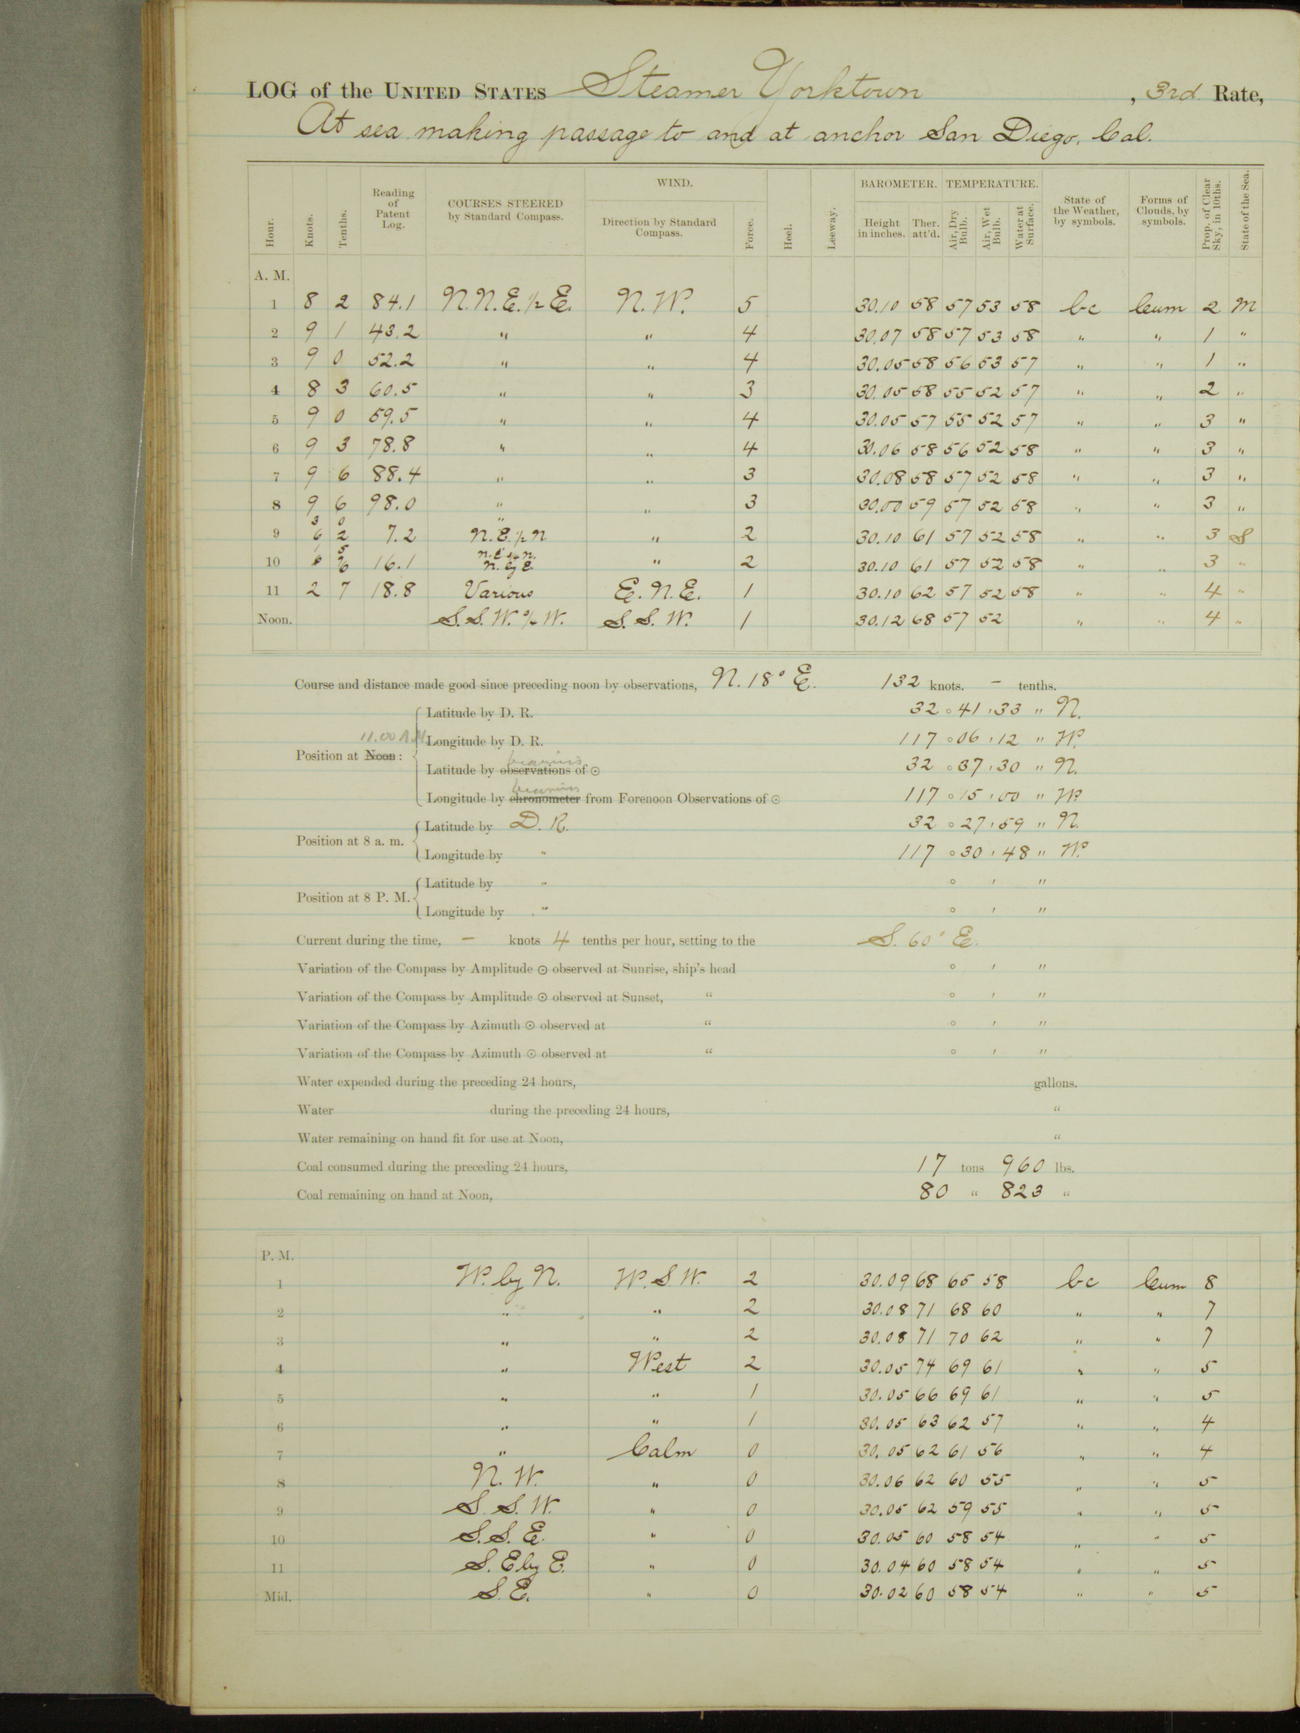 LOG of the UNITED STATES Steamer Yorktown, 3rd Rate,
At sea making passage to and at anchor San Diego, Cal.
Hour. Knots. Tenths. Reading of Patent Log. COURSES STEERED by Standard Compass. WIND. Direction by Standard Compass. Force. Heel. Leeway. BAROMETER. Height in inches. Ther. att'd. TEMPERATURE. Air, Dry Bulb. Air, Wet Bulb. Water at Surface. State of the Weather, by symbols. Forms of Clouds, by symbols. Prop. of Clear Sky, in 10ths. State of the Sea.
A. M.
1 8 2 84.1 N.N.E.½E. N.W. 5 30.10 58 57 53 58 bc Cum 2 M
2 9 1 43.2 " " 4 30.07 58 57 53 58 " " 1 "
3 9 0 52.2 " " 4 30.05 58 56 53 57 " " 1 "
4 8 3 60.5 " " 3 30.05 58 55 52 57 " " 2 "
5 9 0 69.5 " " 4 30.05 57 55 52 57 " " 3 "
6 9 3 78.8 " " 4 30.06 58 56 52 58 " " 3 "
7 9 6 88.4 " " 3 30.08 58 57 52 58 " " 3 "
8 9 6 98.0 " " 3 30.00 59 57 52 58 " " 3 "
3 0 "
9 6 2 7.2 N.E.½N " 2 30.10 61 57 52 58 " " 3 S
5 N.E.½N.
10 6 16.1 N. by E " 2 30.10 61 57 52 58 " " 3 "
11 2 7 18.8 Various E.N.E. 1 30.10 62 57 52 58 " " 4 "
Noon. S.S.W.½W. S.S.W. 1 30.12 68 57 52 " " 4 "
Course and distance made good since preceding noon by observations, N. 18° E. 132 knots. — tenths.
Latitude by D. R. 32 ° 41 ' 33 " N.
11.00 A.M.
Longitude by D. R. 117 ° 06 ' 12 " W.
Position at Noon:
bearings
Latitude by observations of ☉ 32 ° 37 ' 30 " N.
bearings
Longitude by chronometer from Forenoon Observations of ☉ 117 ° 15 ' 00 " W.
Latitude by D. R. 32 ° 27 ' 59 " N.
Position at 8 a. m.
Longitude by " 117 ° 30 ' 48 " W.
Latitude by " ° ' "
Position at 8 P. M.
Longitude by " ° ' "
Current during the time, — knots 4 tenths per hour, setting to the S. 60° E.
Variation of the Compass by Amplitude ☉ observed at Sunrise, ship's head ° ' "
Variation of the Compass by Amplitude ☉ observed at Sunset, " ° ' "
Variation of the Compass by Azimuth ☉ observed at " ° ' "
Variation of the Compass by Azimuth ☉ observed at " ° ' "
Water expended during the preceding 24 hours, gallons.
Water during the preceding 24 hours, "
Water remaining on hand fit for use at Noon, "
Coal consumed during the preceding 24 hours, 17 tons 960 lbs.
Coal remaining on hand at Noon, 80 " 823 "
P. M.
1 W. by N. W.S.W. 2 30.09 68 65 58 bc Cum 8
2 " " 2 30.08 71 68 60 " " 7
3 " " 2 30.08 71 70 62 " " 7
4 " West 2 30.05 74 69 61 " " 5
5 " " 1 30.05 66 69 61 " " 5
6 " " 1 30.05 63 62 57 " " 4
7 " Calm 0 30.05 62 61 56 " " 4
8 N.W. " 0 30.06 62 60 55 " " 5
9 S.S.W. " 0 30.05 62 59 55 " " 5
10 S.S.E. " 0 30.05 60 58 54 " " 5
11 S.E by E. " 0 30.04 60 58 54 " " 5
Mid. S.E. " 0 30.02 60 58 54 " " 5